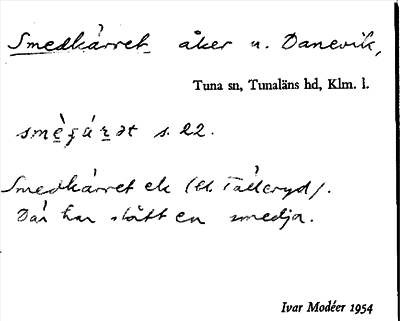 Smedkärret åker u. Danevik,
Tuna sn, Tunaläns hd, Klm. l.
s. 22.
Smedkärret ek
Där har stått en smedja.
Ivar Modéer 1954